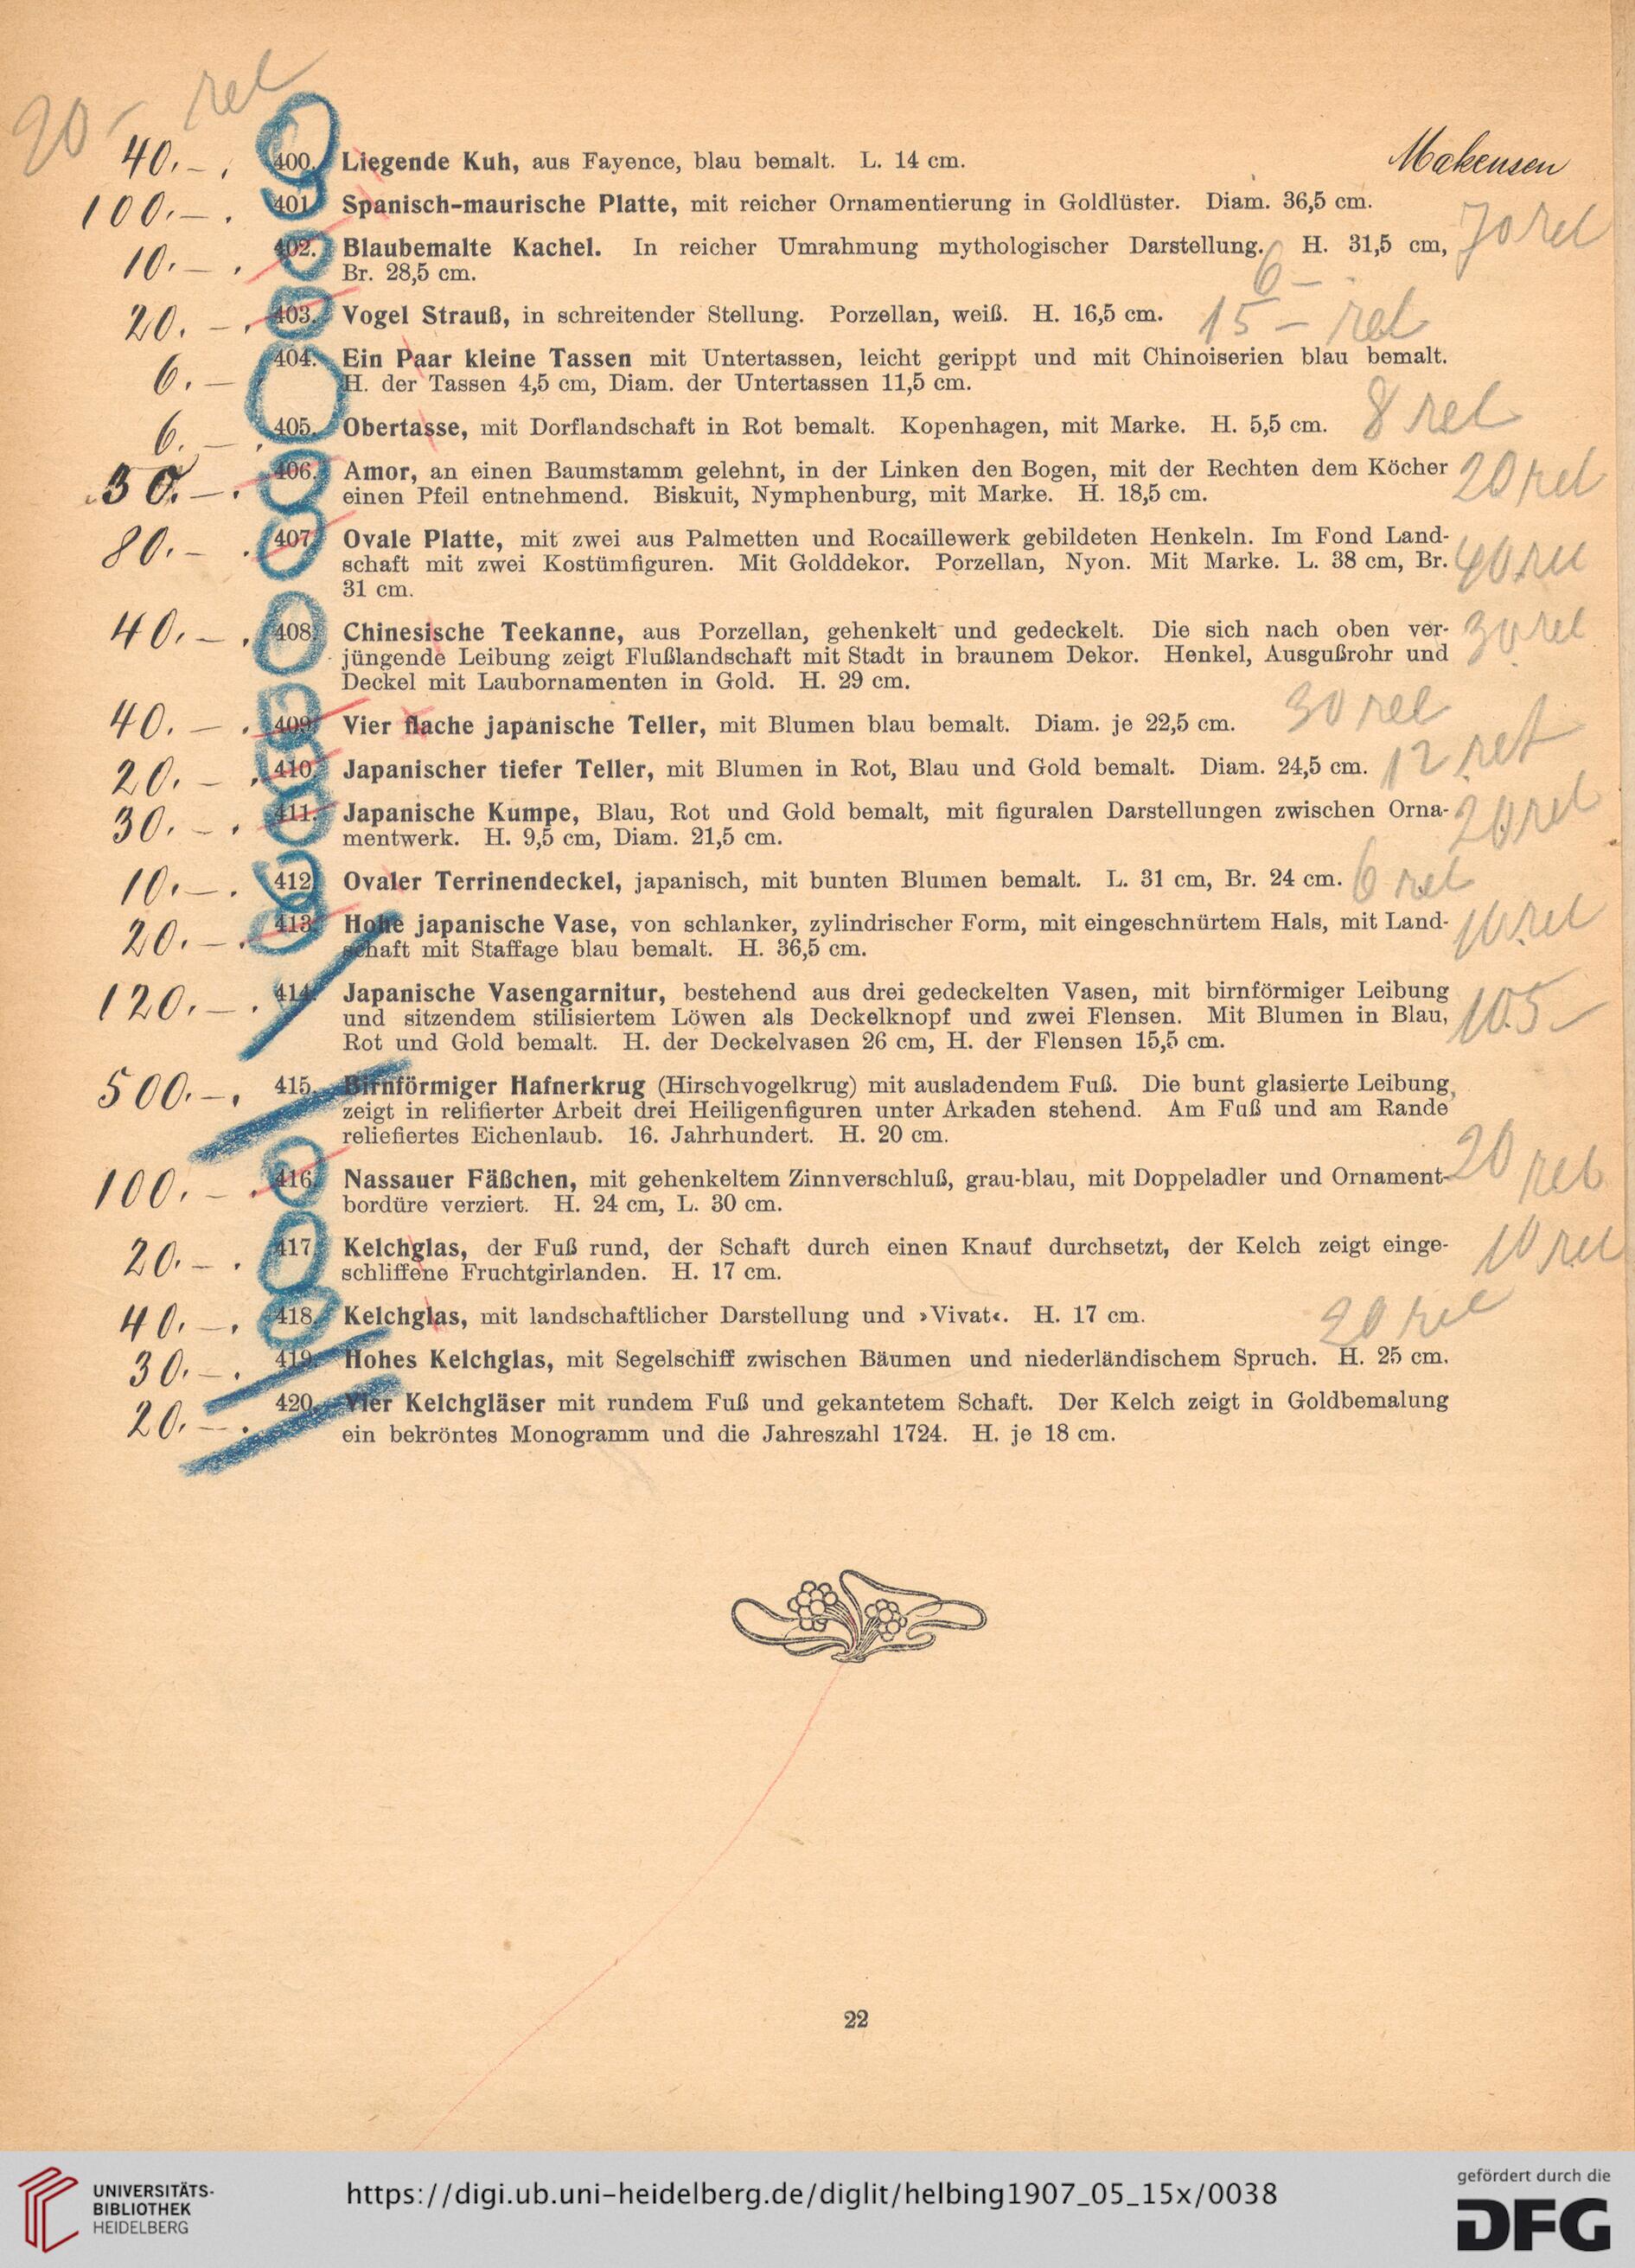 20 - rel
40.- . 400. Liegende Kuh, aus Fayence, blau bemalt. L. 14 cm. Makensen
100.- . 401. Spanisch-maurische Platte, mit reicher Ornamentierung in Goldlüster. Diam. 36,5 cm.
70 rel
10.- . 402. Blaubemalte Kachel. In reicher Umrahmung mythologischer Darstellung. H. 31,5 cm,
Br. 28,5 cm. 6 -
20.- . 403. Vogel Strauß, in schreitender Stellung. Porzellan, weiß. H. 16,5 cm. 15 - rel
6.- 404. Ein Paar kleine Tassen mit Untertassen, leicht gerippt und mit Chinoiserien blau bemalt.
H. der Tassen 4,5 cm, Diam. der Untertassen 11,5 cm.
6.- . 405. Obertasse, mit Dorflandschaft in Rot bemalt. Kopenhagen, mit Marke. H. 5,5 cm. 8 rel
30.- . 406. Amor, an einen Baumstamm gelehnt, in der Linken den Bogen, mit der Rechten dem Köcher 20 rel
einen Pfeil entnehmend. Biskuit, Nymphenburg, mit Marke. H. 18,5 cm.
80.- . 407. Ovale Platte, mit zwei aus Palmetten und Rocaillewerk gebildeten Henkeln. Im Fond Land-
schaft mit zwei Kostümfiguren. Mit Golddekor. Porzellan, Nyon. Mit Marke. L. 38 cm, Br. 40 rel
31 cm.
40.- . 408. Chinesische Teekanne, aus Porzellan, gehenkelt und gedeckelt. Die sich nach oben ver- 30 rel
jüngende Leibung zeigt Flußlandschaft mit Stadt in braunem Dekor. Henkel, Ausgußrohr und
Deckel mit Laubornamenten in Gold. H. 29 cm.
40.- . 409. Vier flache japanische Teller, mit Blumen blau bemalt. Diam. je 22,5 cm. 30 rel
20.- . 410. Japanischer tiefer Teller, mit Blumen in Rot, Blau und Gold bemalt. Diam. 24,5 cm. 12 rel
30.- . 411. Japanische Kumpe, Blau, Rot und Gold bemalt, mit figuralen Darstellungen zwischen Orna- 20 rel
mentwerk. H. 9,5 cm, Diam. 21,5 cm.
10.- . 412. Ovaler Terrinendeckel, japanisch, mit bunten Blumen bemalt. L. 31 cm, Br. 24 cm. 6 rel
20.- . 413. Hohe japanische Vase, von schlanker, zylindrischer Form, mit eingeschnürtem Hals, mit Land- 10 rel
schaft mit Staffage blau bemalt. H. 36,5 cm.
120.- . 414. Japanische Vasengarnitur, bestehend aus drei gedeckelten Vasen, mit birnförmiger Leibung
und sitzendem stilisiertem Löwen als Deckelknopf und zwei Flensen. Mit Blumen in Blau, 105 -
Rot und Gold bemalt. H. der Deckelvasen 26 cm, H. der Flensen 15,5 cm.
500.- . 415. Birnförmiger Hafnerkrug (Hirschvogelkrug) mit ausladendem Fuß. Die bunt glasierte Leibung
zeigt in relifierter Arbeit drei Heiligenfiguren unter Arkaden stehend. Am Fuß und am Rande
reliefiertes Eichenlaub. 16. Jahrhundert. H. 20 cm.
100.- . 416. Nassauer Fäßchen, mit gehenkeltem Zinnverschluß, grau-blau, mit Doppeladler und Ornament- 20 rel
bordüre verziert. H. 24 cm, L. 30 cm.
20.- . 417. Kelchglas, der Fuß rund, der Schaft durch einen Knauf durchsetzt, der Kelch zeigt einge- 10 rel
schliffene Fruchtgirlanden. H. 17 cm.
40.- . 418. Kelchglas, mit landschaftlicher Darstellung und »Vivat«. H. 17 cm. 20 rel
30.- . 419. Hohes Kelchglas, mit Segelschiff zwischen Bäumen und niederländischem Spruch. H. 25 cm.
20.- . 420. Vier Kelchgläser mit rundem Fuß und gekantetem Schaft. Der Kelch zeigt in Goldbemalung
ein bekröntes Monogramm und die Jahreszahl 1724. H. je 18 cm.
22
UNIVERSITÄTS-
BIBLIOTHEK
HEIDELBERG
https://digi.ub.uni-heidelberg.de/diglit/helbing1907_05_15x/0038
gefördert durch die
DFG